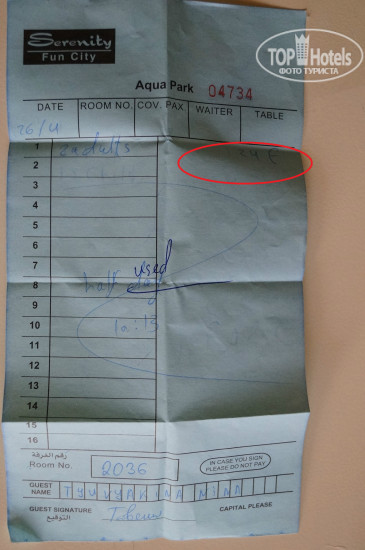 TOP Hotels
ФОТО ТУРИСТА
Serenity
Fun City
Aqua Park 04734
DATE ROOM NO. COV. PAX. WAITER TABLE
26/4
1 2 adults
2
3
4
5
6
7 used
8 half day
9
10
11
12
13
14
15
16
رقم الغرفة
Room No. 2036
IN CASE YOU SIGN
PLEASE DO NOT PAY
GUEST
NAME TYUKYAKINA
GUEST SIGNATURE
التوقيع
CAPITAL PLEASE